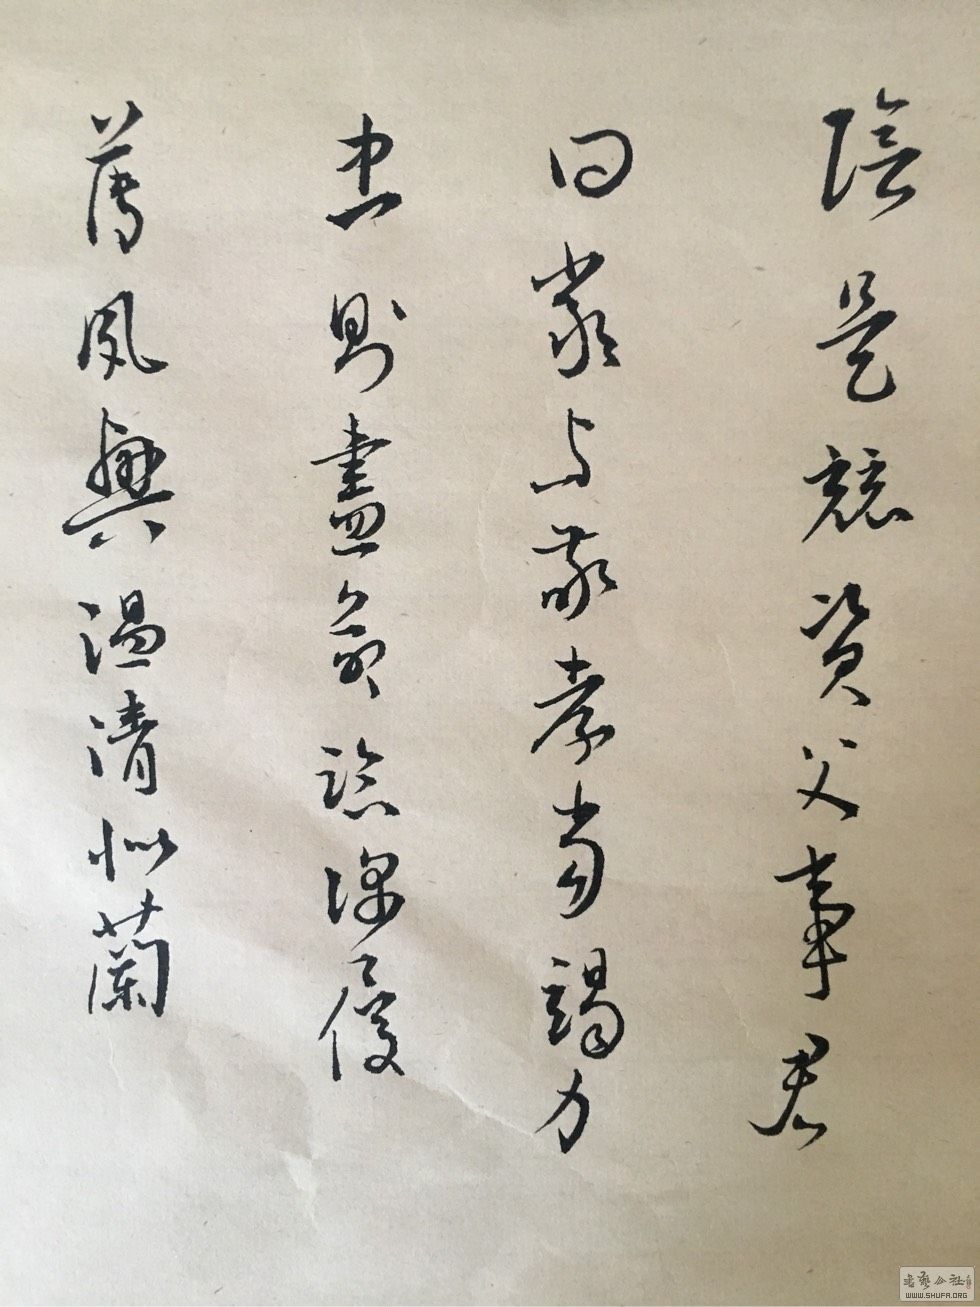 陰是競資父事君
曰嚴与敬孝當竭力
忠則盡命臨深履
薄夙興溫清似蘭
書藝公社
WWW.SHUFA.ORG